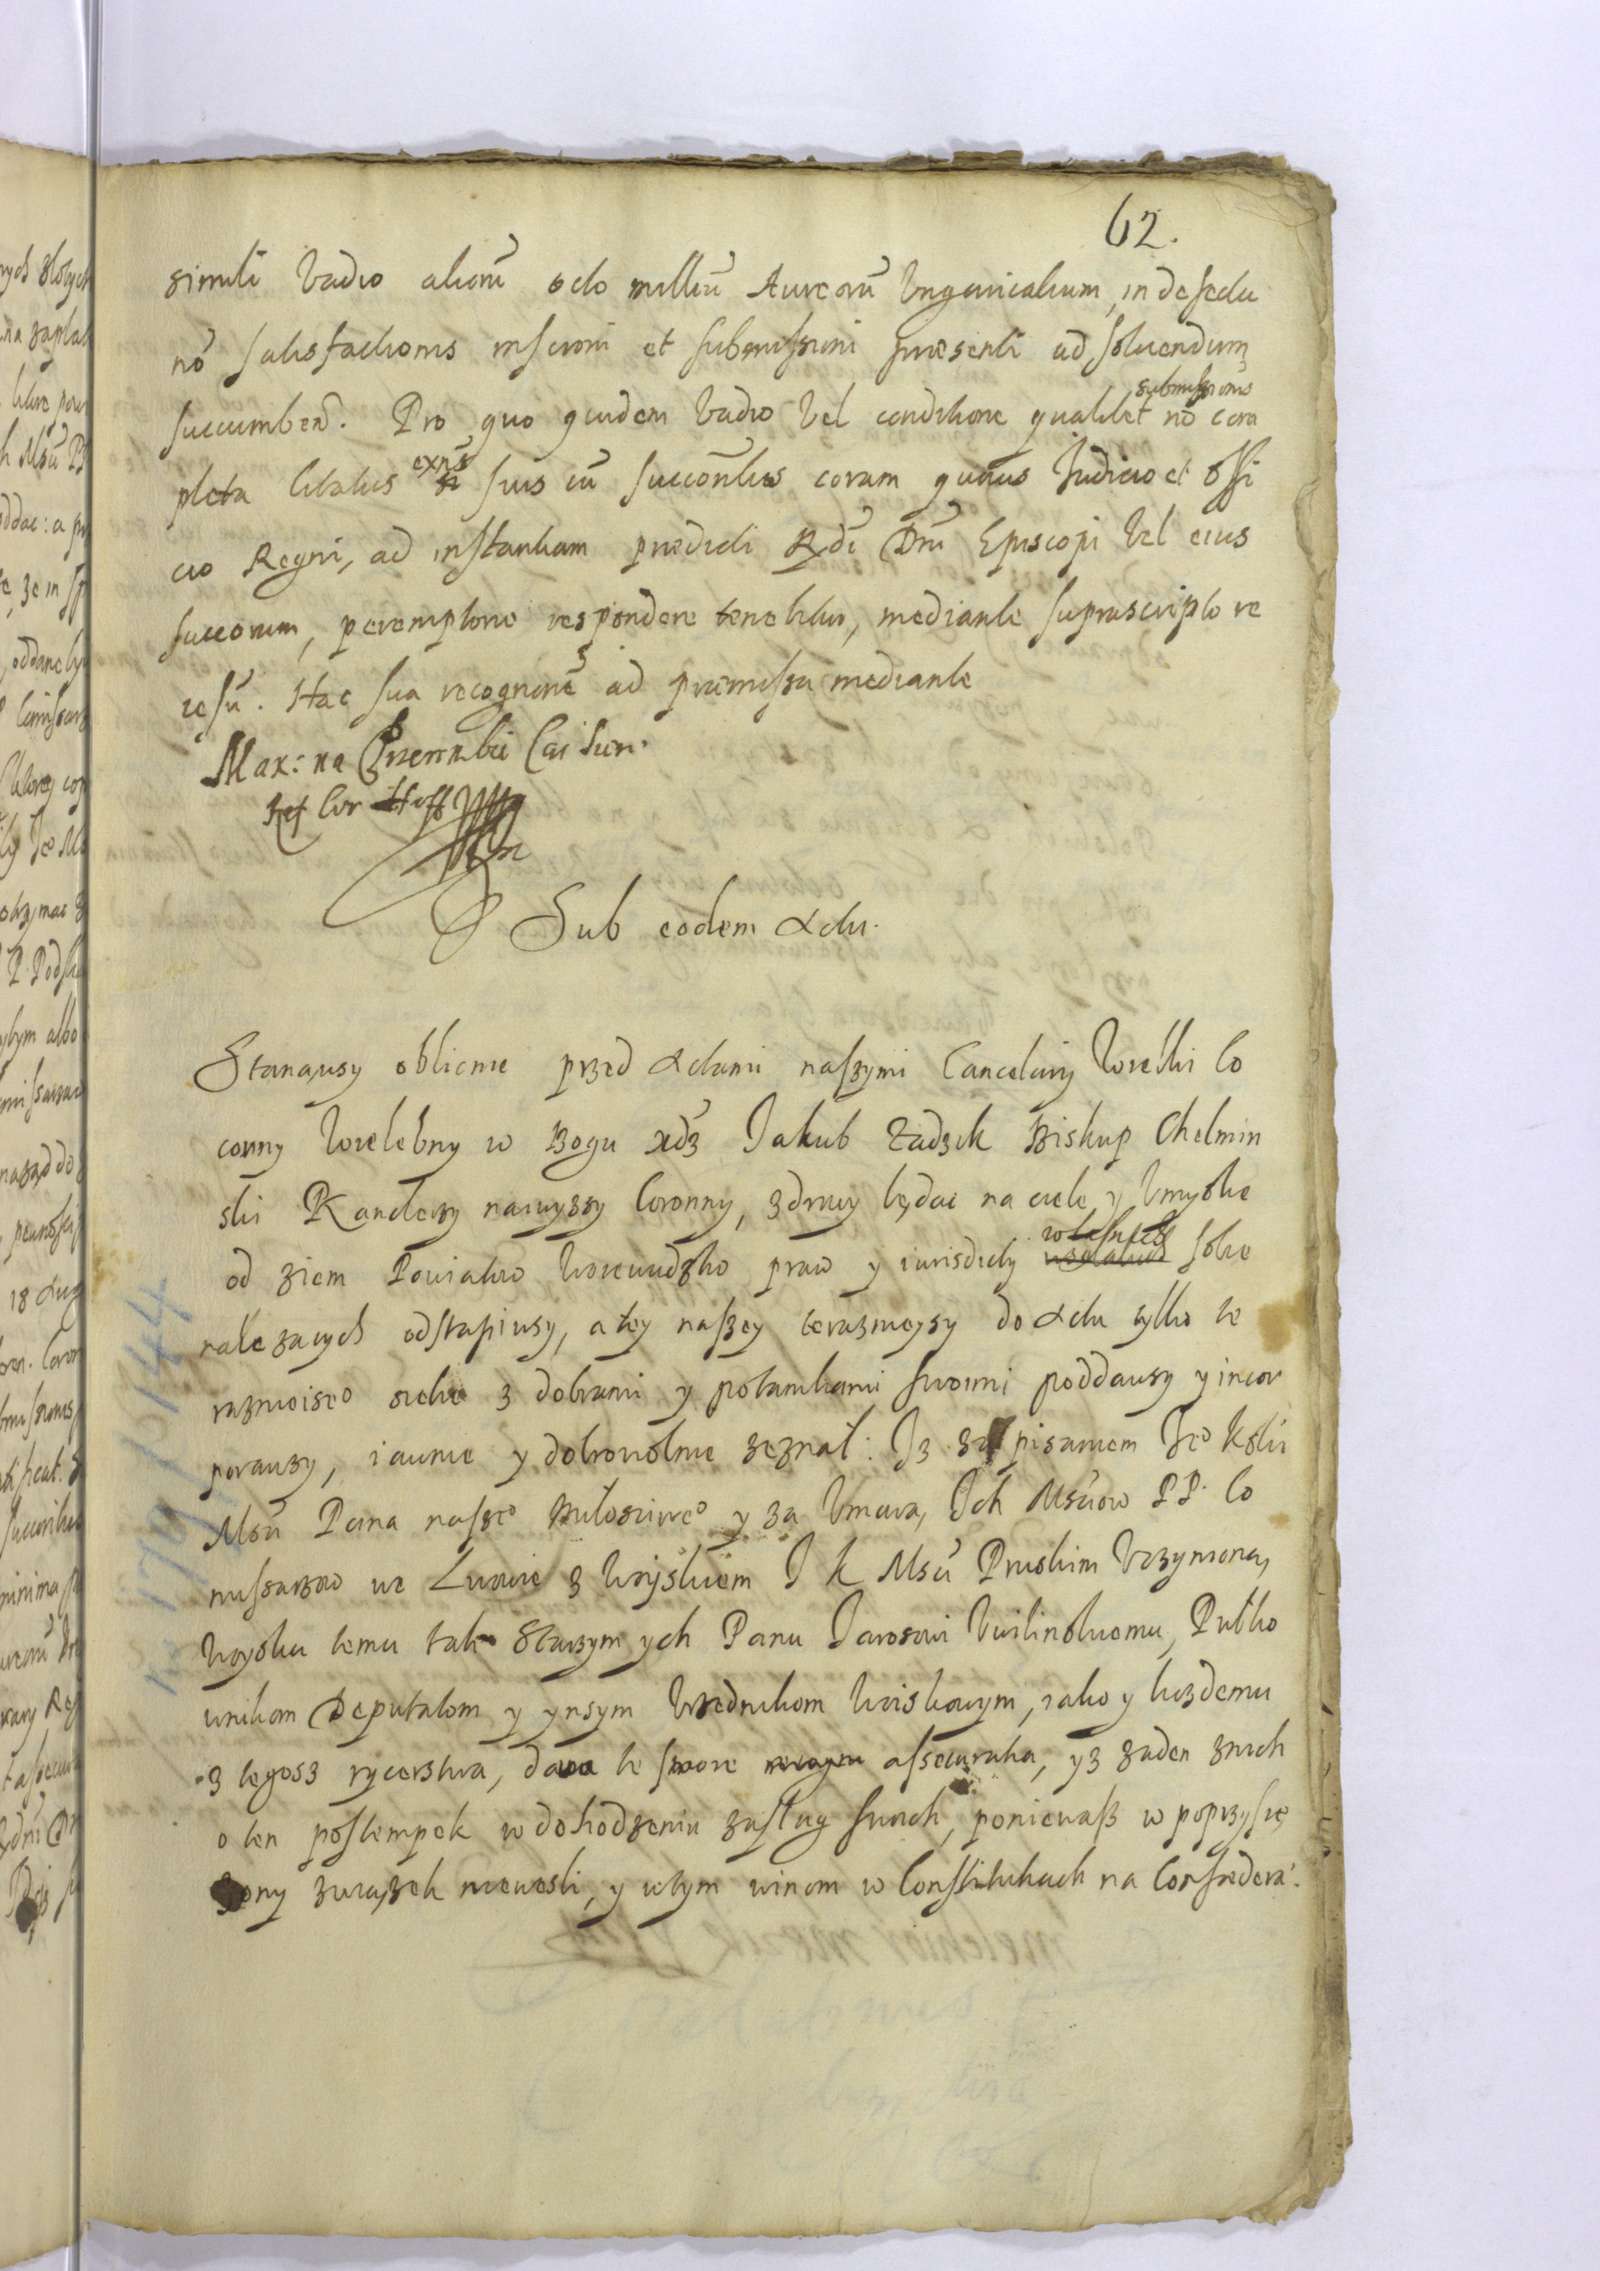 62.
simili vadio aliorũ octo milliũ Aureorũ Ungaricalium, in defectu
nõ satisfactionis inscrõni et submissioni praesenti ad solvendum
submissionis
succumbeñ. Pro quo quidem vadio vel conditione qualibet nõ com
exñs
pleta citatus suis cũ succõribus coram quovis Judicio et Offi
cio Regni, ad instantiam praedicti Rdi Dñi Episcopi vel eius
succorum, peremptorie respondere tenebitur, mediante suprascripto re
cessũ. Hac sua recognitione ad praemissa mediante
Max: na Przerembiu
Ref Cor
Sub eodem Actu.
Stanąwsy oblicnie przed Actami naszymi Cancelariy Wielki Co
ronny Wielebny w Bogu xdz Jakub Zadzik Biskup Chelmin
ski Kanclerzy nawyzszy Coronny, zdrowy będąc na ciele y Umysle
wszelakich
od ziem Powiatow Woiewudztw praw y iurisdicty sobie
należacych odstąpiwsy, a tey naszey terazneysy do Actu tylko te
raznieiseo siebie z dobrami y potomkami swoimi poddawsy y incor
porawzy, iawnie y dobrowolnie zeznał: Iz za pisaniem Jeo Kolii
Mści Pana naszeo Miłosciweo y za Umową, Ich Mściow PP. Co
missarzow we Lwowie z Woyskiem J K Mści Pruskim Uczynioną,
Woysku temu tak Starzym ych Panu Jarosowi Wilinskiemu, Pułko
wnikom Deputatom y ynsym Urzednikom Woiskowym, iako y kozdemu
z tegosz rycerstwa, dawa te swoie assecuratia, yz zaden znich
o ten postempek w dohodzeniu zasług swoich, poniewasz w poprzysię
zony związek nieweśli, y wtym winom w Constitutiach na Confoederá: